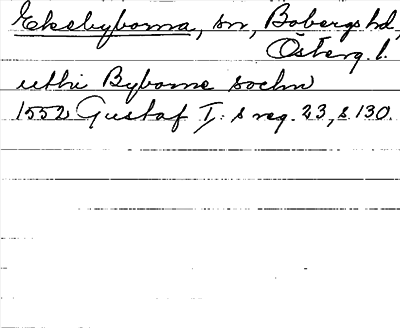 Ekebyborna, sn, Bobergs hd,
Österg. l.
uthi Byborne sochn
1552 Gustaf I:s reg. 23, s. 130.